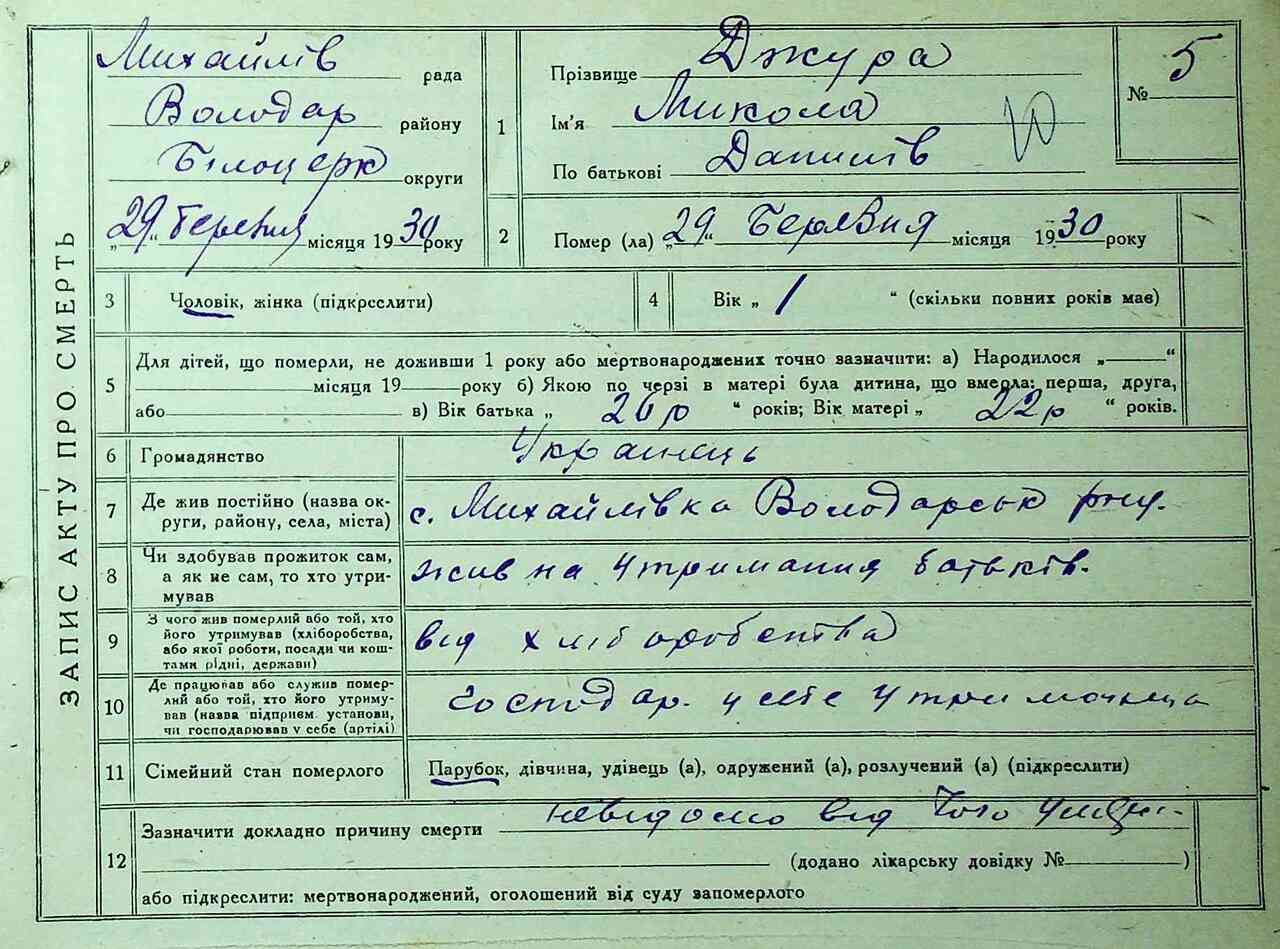 ЗАПИС АКТУ ПРО СМЕРТЬ
Михайлів рада
Володар району
Білоцерк округи
„29“ Березня місяця 1930 року
1
Прізвище Джура
Ім'я Микола
По батькові Данилів
№ 5
2
Помер (ла) „29“ Березня місяця 1930 року
3 Чоловік, жінка (підкреслити)
4 Вік „ 1 “ (скільки повних років має)
5
Для дітей, що померли, не доживши 1 року або мертвонароджених точно зазначити: а) Народилося „ “
місяця 19 року б) Якою по черзі в матері була дитина, що вмерла: перша, друга,
або в) Вік батька „ 26 р “ років; Вік матері „ 22 р “ років.
6 Громадянство Українець
7 Де жив постійно (назва ок-
руги, району, села, міста)
с. Михайлівка Володарськ рну.
8 Чи здобував прожиток сам,
а як не сам, то хто утри-
мував
жив на утримания батьків.
9 З чого жив померлий або той, хто
його утримував (хліборобства,
або якої роботи, посади чи кош-
тами рідні, держави)
від хліборобства
10 Де працював або служив помер-
лий або той, хто його утриму-
вав (назва підприєм. установи,
чи господарював у себе (артілі)
Господар. у себе
11 Сімейний стан померлого Парубок, дівчина, удівець (а), одружений (а), розлучений (а) (підкреслити)
12 Зазначити докладно причину смерти невідомо від чого
(додано лікарську довідку № )
або підкреслити: мертвонароджений, оголошений від суду запомерлого